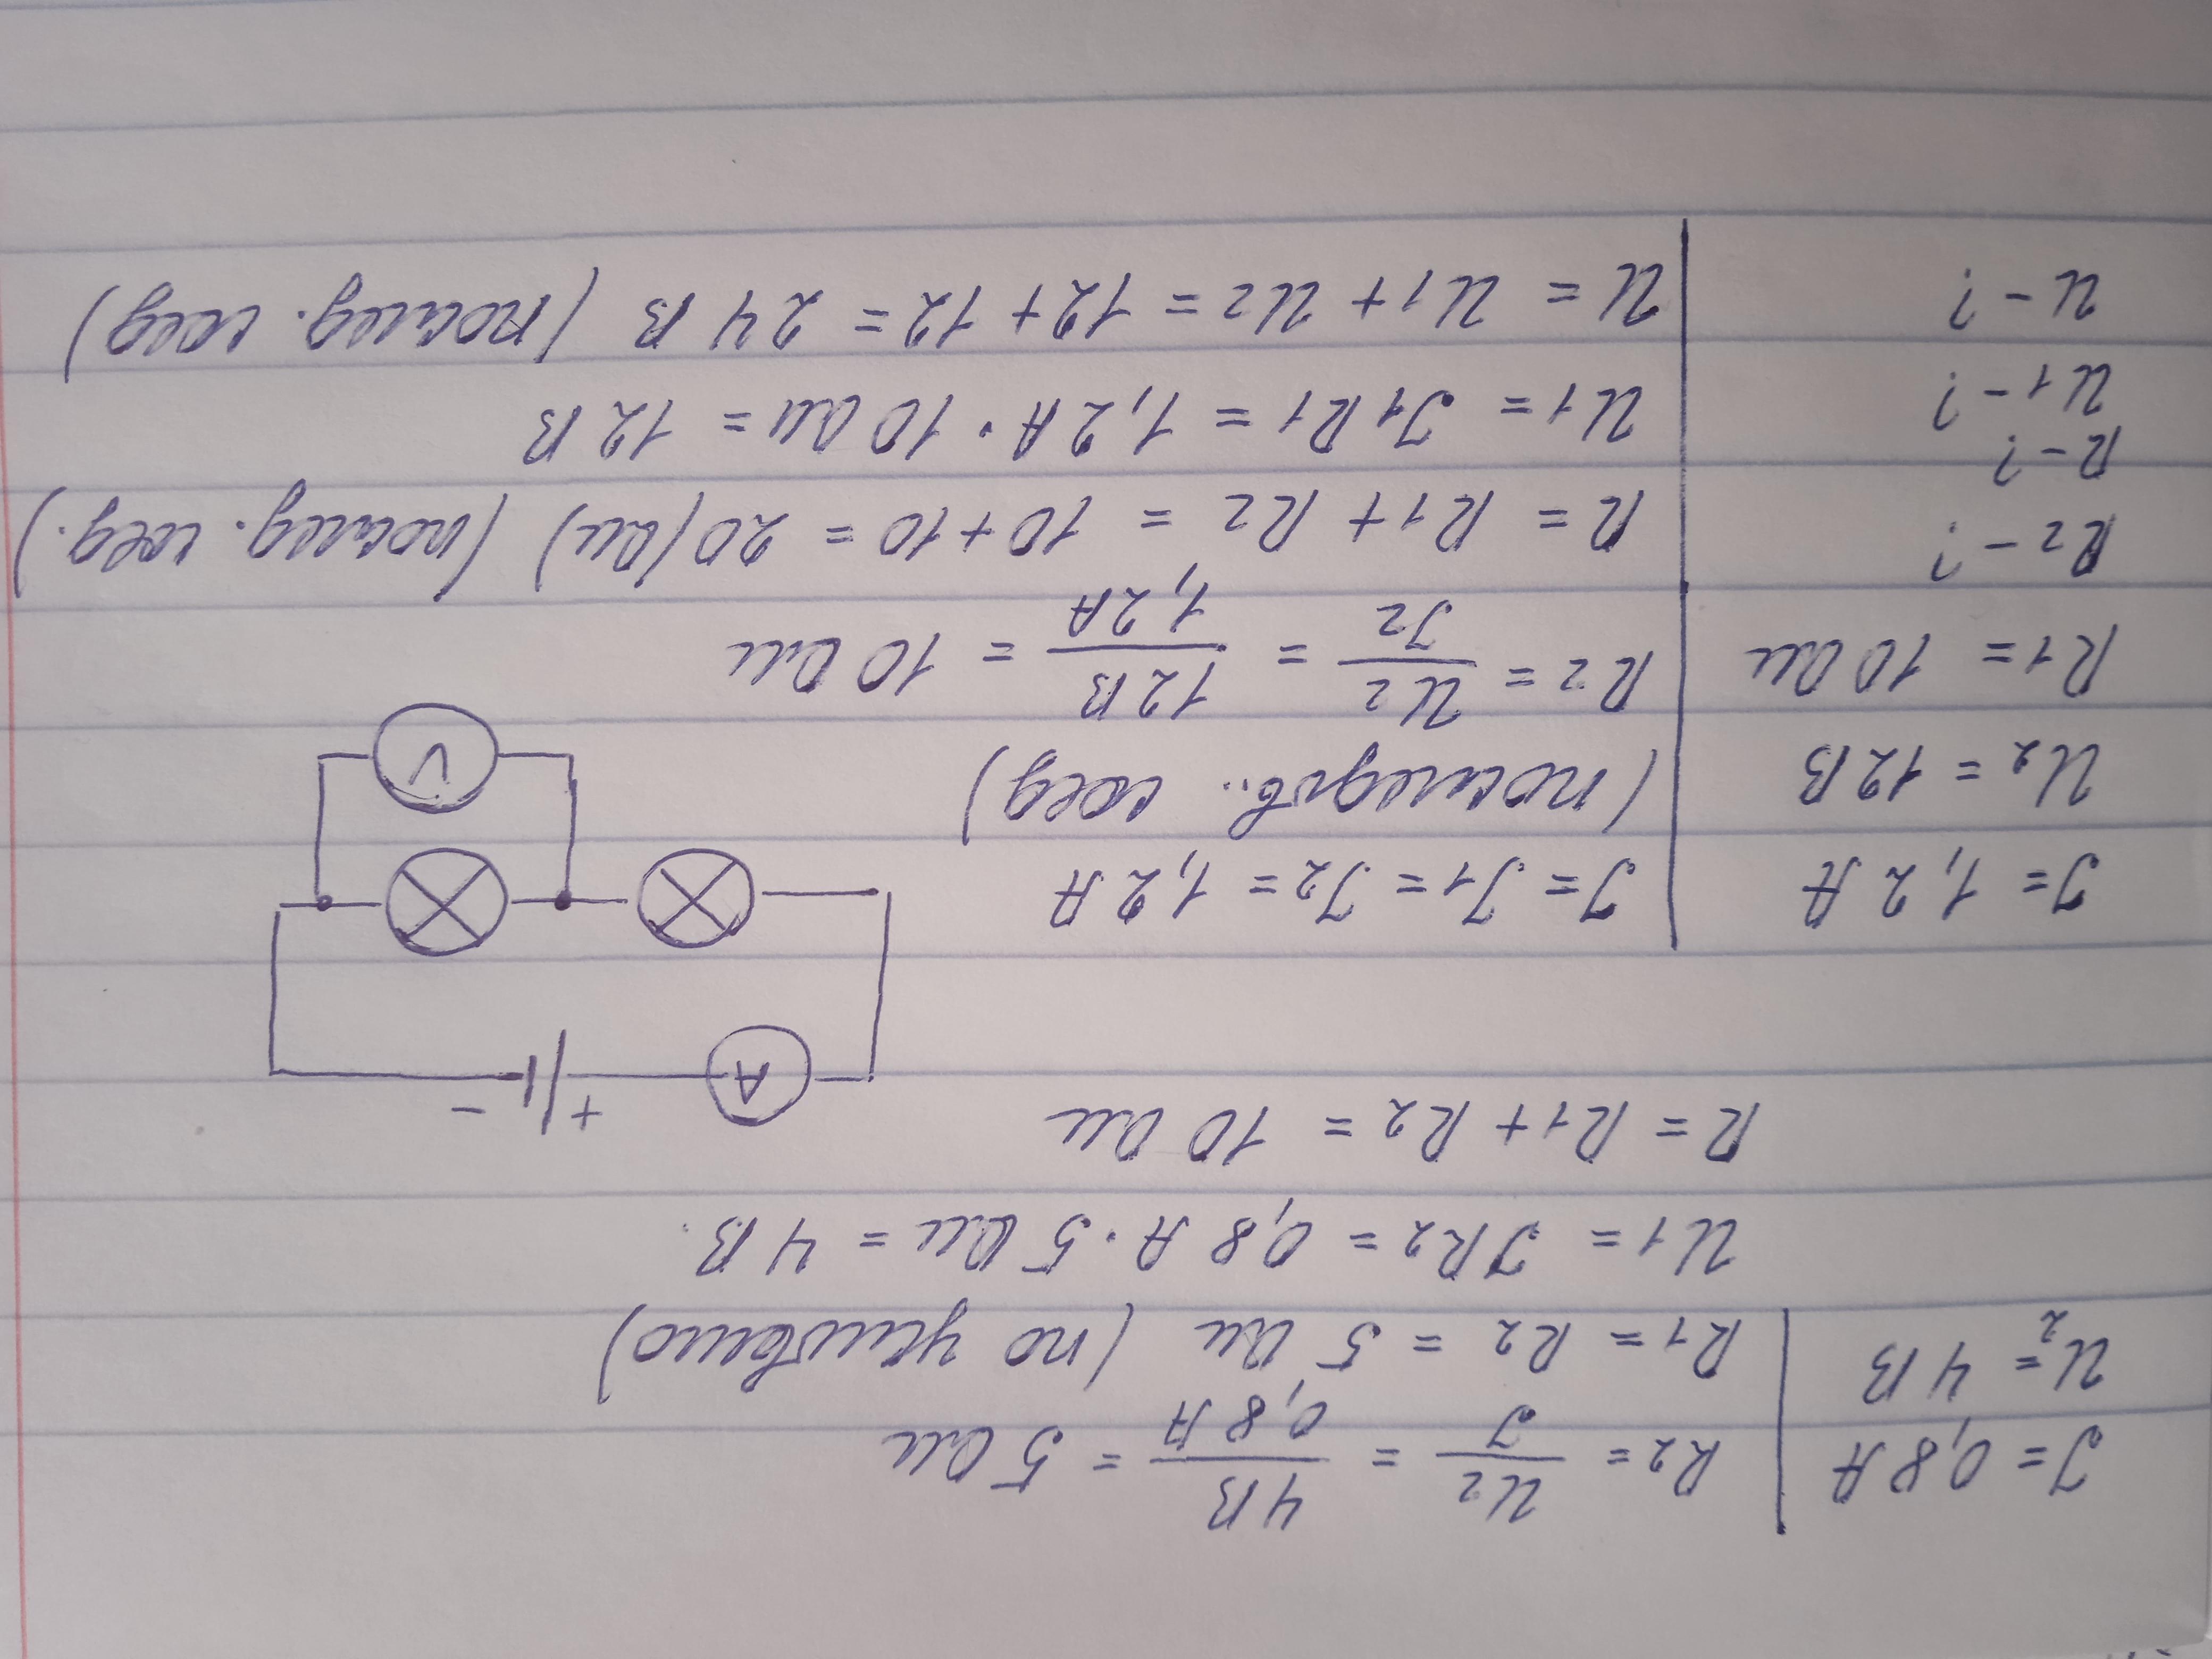 I = 0,8 А
U2 = 4 В
R2 = U2/I = 4В/0,8 А = 5 Ом
R1 = R2 = 5 Ом (по условию)
U1 = IR2 = 0,8 А · 5 Ом = 4 В.
R = R1 + R2 = 10 Ом
A
+ -
V
I = 1,2 А
U2 = 12В
R1 = 10 Ом
R2 - ?
R - ?
U1 - ?
U - ?
I = I1 = I2 = 1,2 А
(последов.. соед)
R2 = U2/I2 = 12В/1,2А = 10 Ом
R = R1 + R2 = 10 + 10 = 20 (Ом) (послед. соед.)
U1 = I1 R1 = 1,2 А · 10 Ом = 12 В
U = U1 + U2 = 12 + 12 = 24 В (послед. соед)